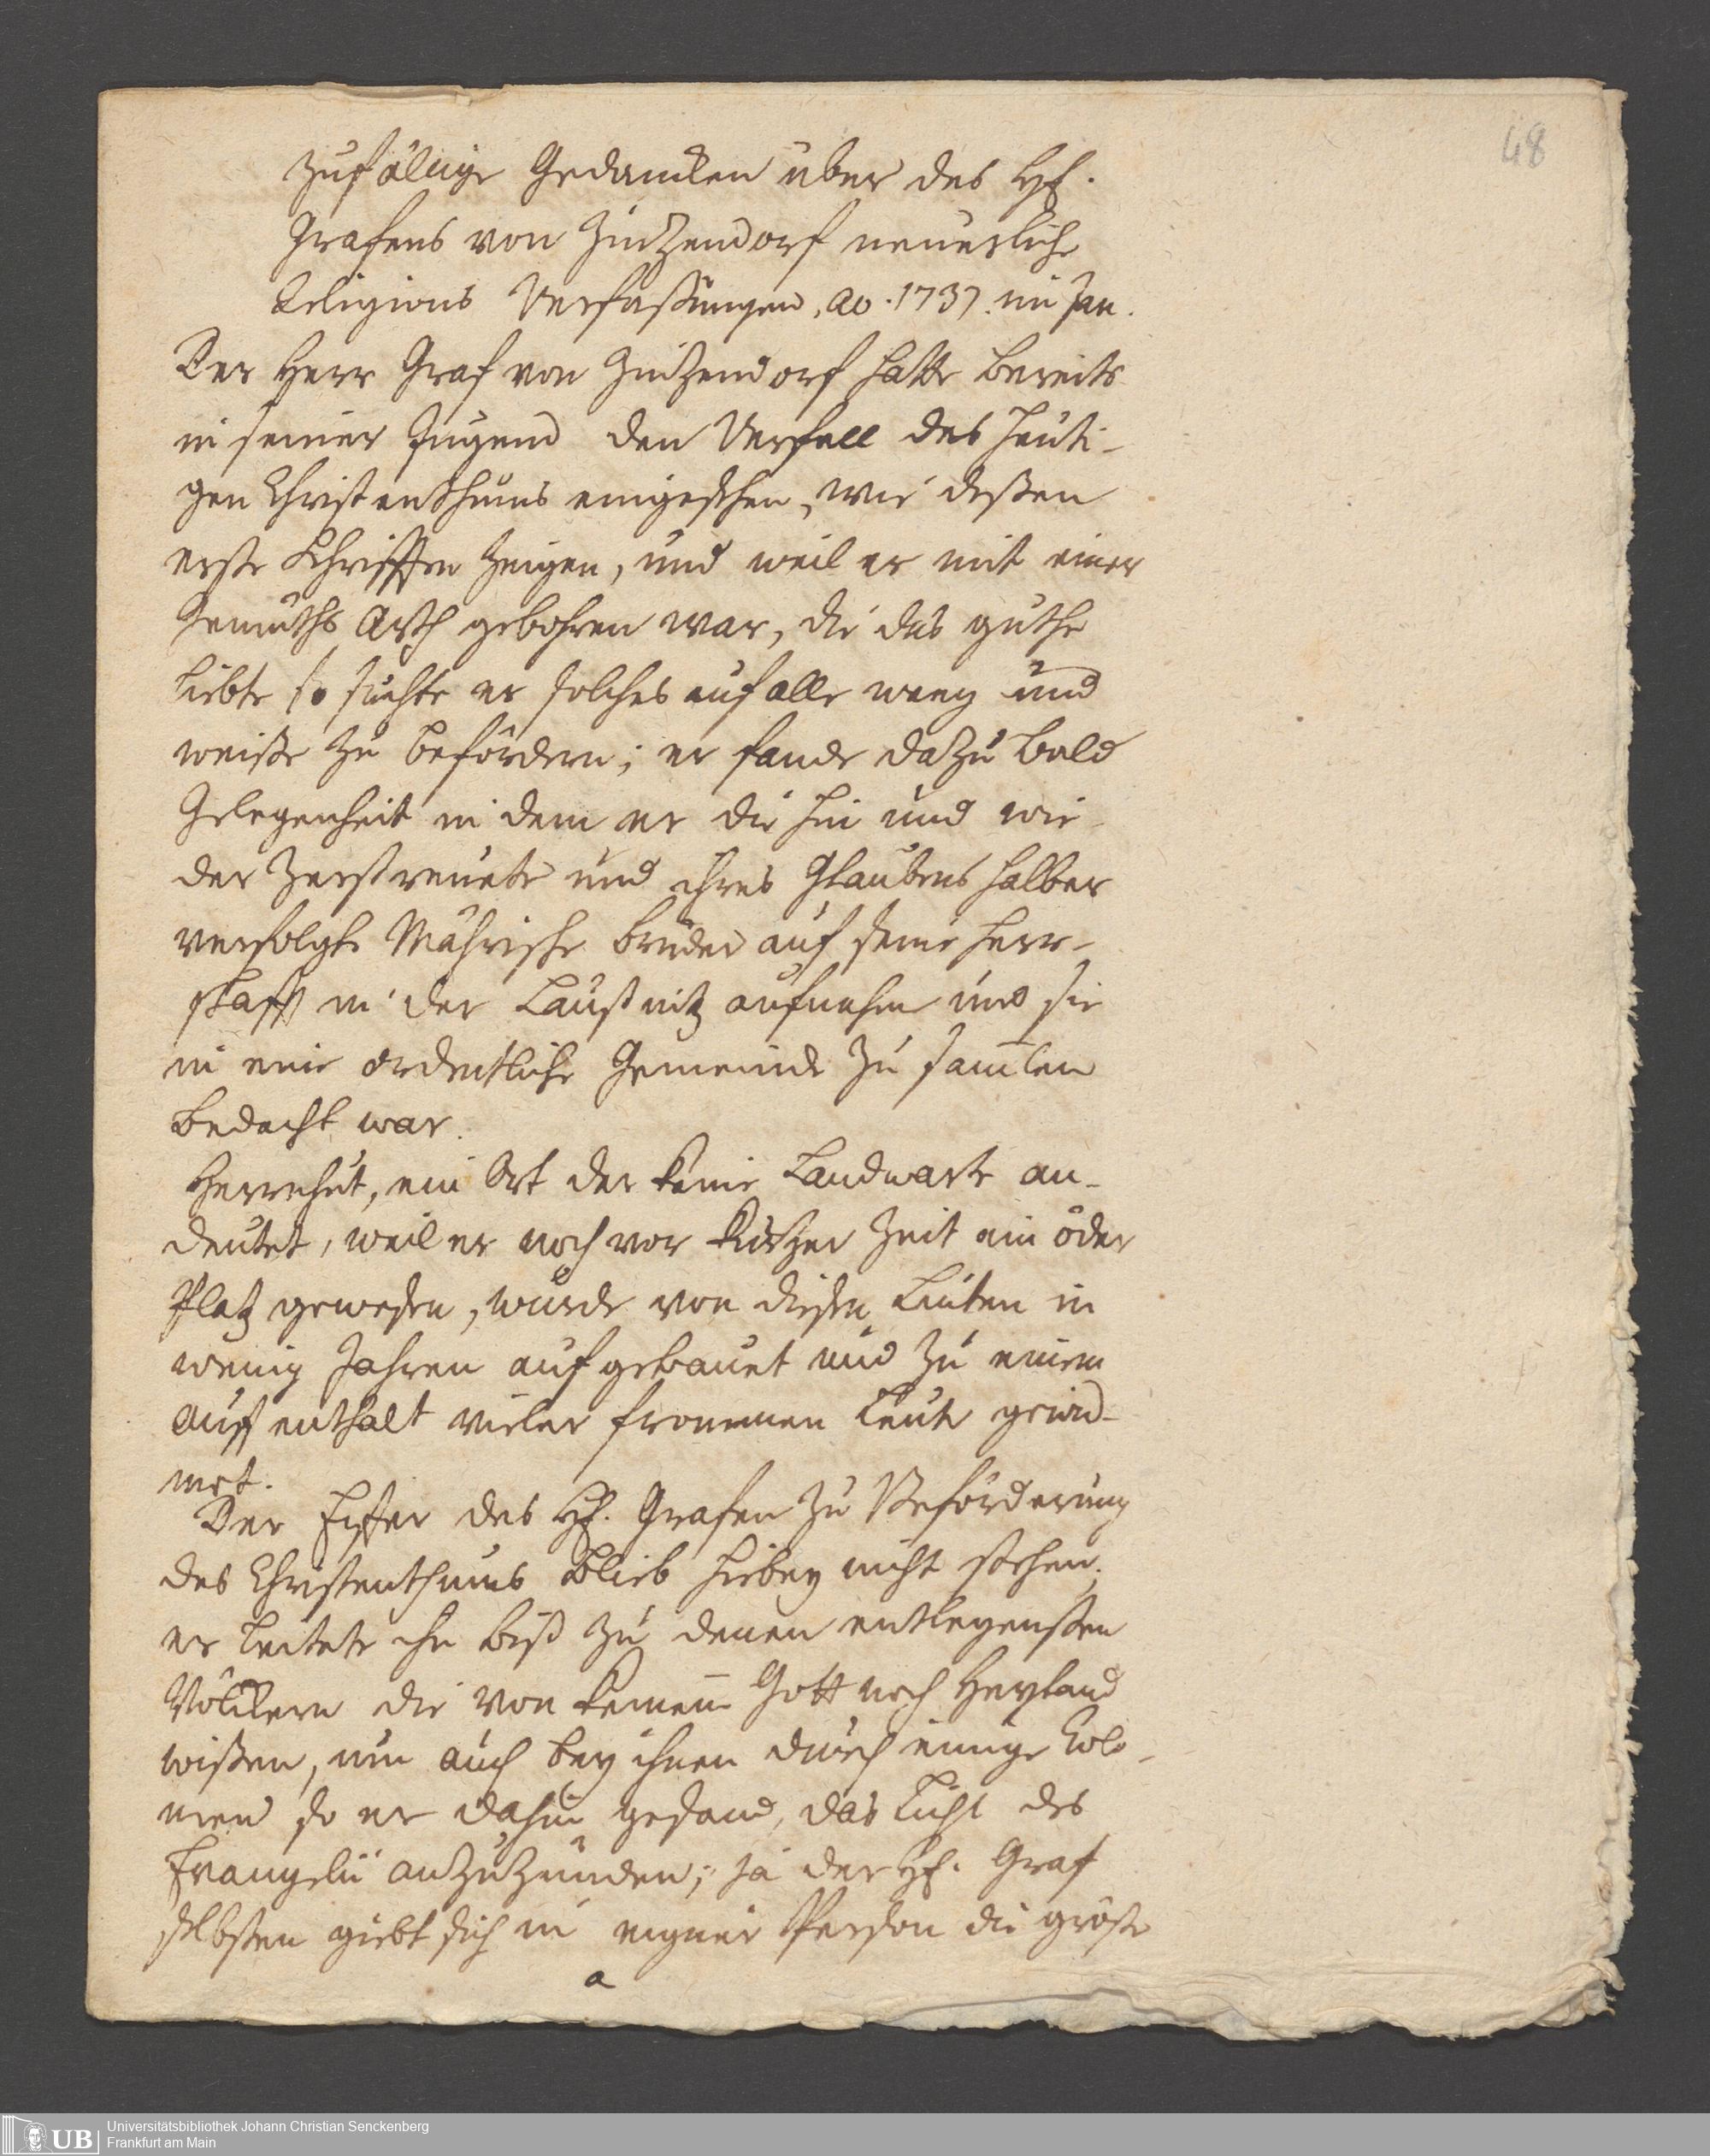 48
Zufällige Gedancken über des H.
Grafens von Zinzendorf neuerliche
Religions Verfaßungen, ao. 1737. im Jan.
Der Herr Graf von Zinzendorf hatte bereits
in seiner Jugend den Verfall des heuti-
gen Christenthums eingesehen, wie deßen
erste Schrifften zeigen, und weil er mit einer
Gemüths Arth gebohren war, die das guthe
liebte so suchte er solches auf alle weeg und
weiße zu befördern; er fande dazu bald
Gelegenheit in dem er die hin und wie-
der Zerstreuete und ihres Glaubens halber
verfolgte Mährische Brüder auf seine Herr-
schafft in der Laußnitz aufnahm und sie
in eine ordentliche Gemeinde zu samlen
bedacht war.
Herrnhut, ein Ort der keine Landcarte an-
deutet, weil er noch vor kurtzer Zeit ein öder
Platz gewesen, wurde von diesen Leuten in
wenig Jahren auf gebauet und zu einem
auff enthalt vieler frommen Leute gewid-
met.
Der Eyffer des H. Grafen zu Beförderung
des Christenthums blieb hiebey nicht stehen;
er leitete ihn biß zu denen entlegensten
Völckern die von keinem Gott noch Heyland
wißen, um auch bey ihnen durch einige Colo-
nien so er dahin gesand, das Licht des
Evangelii anzuzünden; ja der H. Graf
selbsten giebt sich in eigner Person die größte
a
UB
Universitätsbibliothek Johann Christian Senckenberg
Frankfurt am Main